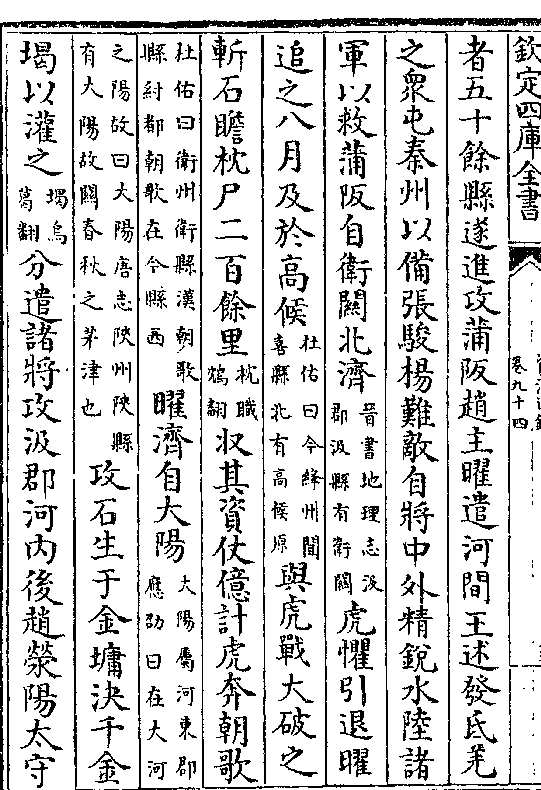 欽定四庫全書
卷九十四
者五十餘縣遂進攻蒲阪趙主曜遣河間王述發氐羌
之衆屯秦州以備張駿楊難敵自將中外精銳水陸諸
軍以救蒲阪自衛關北濟晉書地理志汲郡汲縣有衛關虎懼引退曜
追之八月及於高候杜佑曰今絳州聞喜縣北有高候原與虎戰大破之
斬石瞻枕尸二百餘里枕職鴆翻収其資仗億計虎奔朝歌
杜佑曰衛州衛縣漢朝歌縣紂都朝歌在今縣西曜濟自大陽大陽屬河東郡應劭曰在大河
之陽故曰大陽唐志陜州陜縣有大陽故關春秋之茅津也攻石生于金墉決千金
堨以灌之堨烏葛翻分遣諸將攻汲郡河内後趙滎陽太守